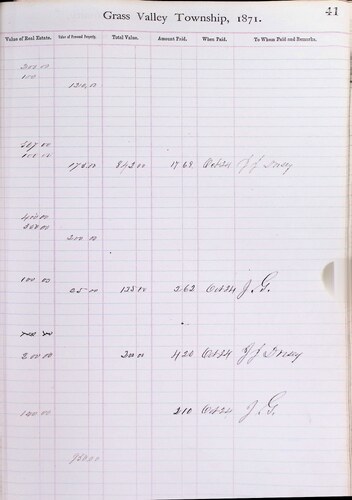 41
Grass Valley Township, 1871.
Value of Real Estate. Value of Personal Property. Total Value. Amount Paid. When Paid. To Whom Paid and Remarks.
200 00
100
1210,00
100 00
175.00 842 00 17 68 Oct 24
400 00
200 00
200 00
100 00
25 00 125 00 2 62 Oct 24 J. G.
200 00 200 00 4 20 Oct 24
100 00 2 10 Oct 24 J. G.
950.00